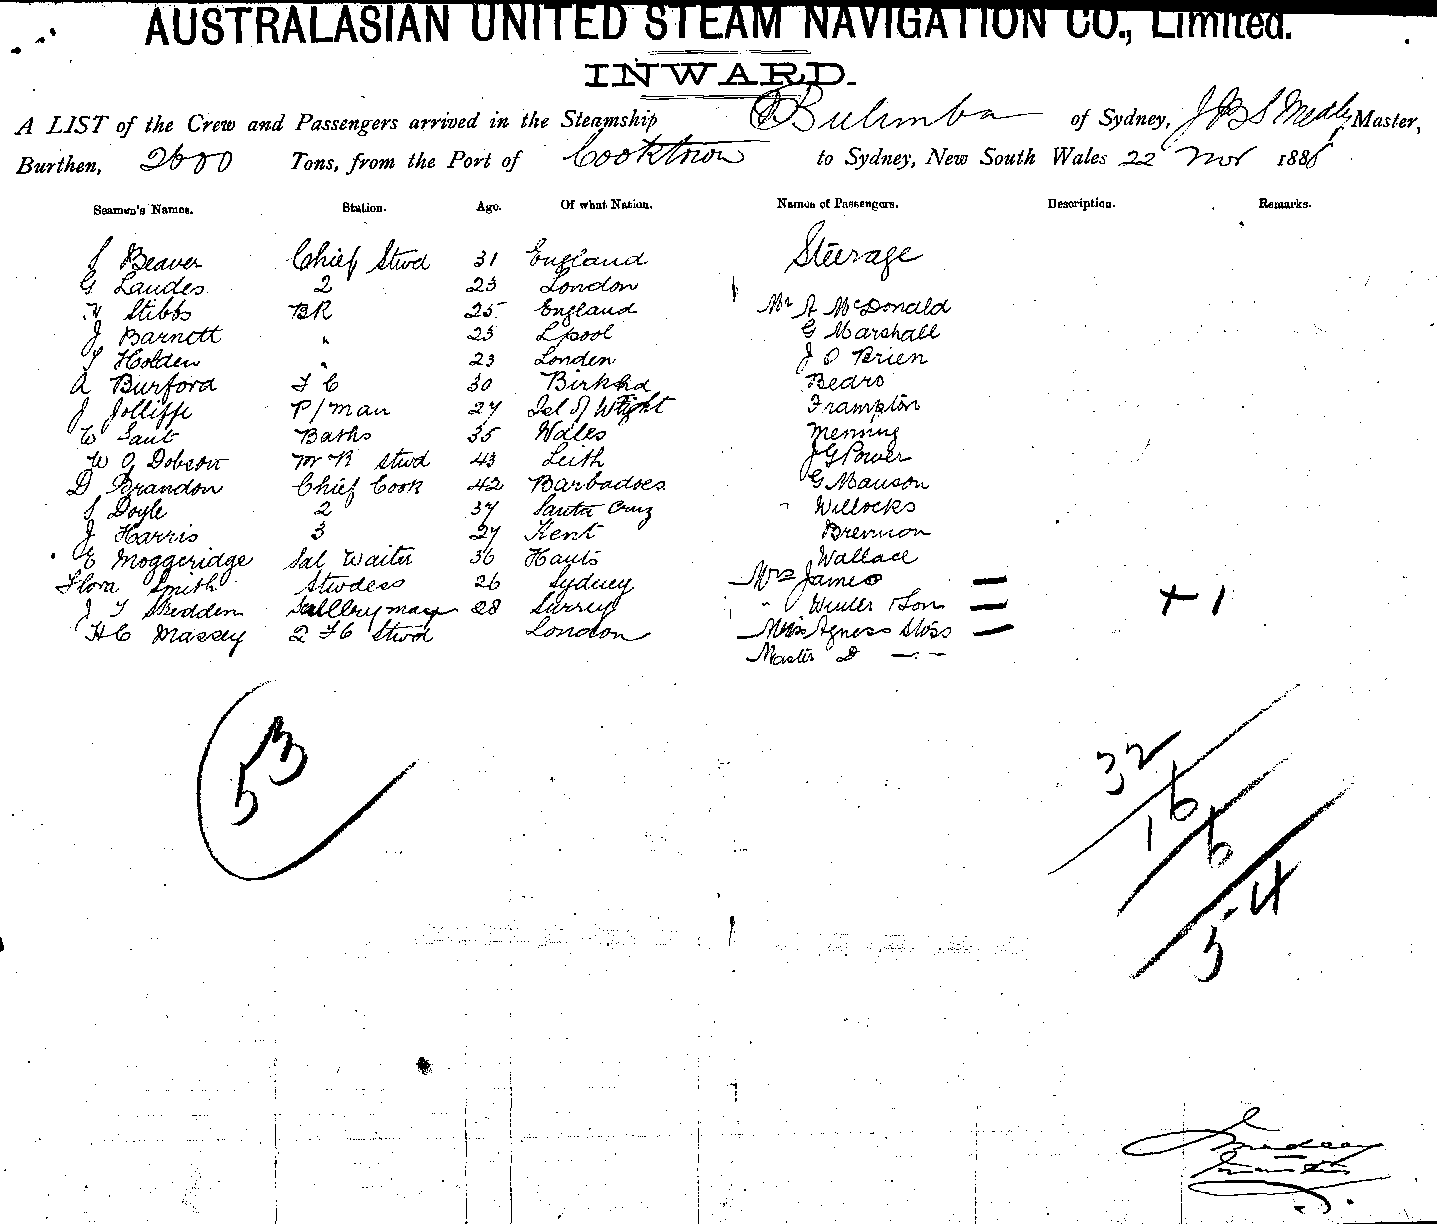 AUSTRALASIAN UNITED STEAM NAVIGATION CO., Limited.
INWARD.
A LIST of the Crew and Passengers arrived in the Steamship Bulimba of Sydney, Master,
Burthen, Tons, from the Port of Cooktown to Sydney, New South Wales 22 Nov 188
Seamen's Names. Station. Age. Of what Nation. Names of Passengers. Description. Remarks.
Beaver Chief Stwd 31 England Steerage
G Landes 2 23 London
Stibbs BR 25 England Mr A McDonald
J Barnott " 25 Lpool G Marshall
Holden " 23 London J O Brien
A Burford 30 Birkhd Bedro
J Jolliffe P/man 27 Isl of Wight Frampton
W Baths 35 Wales Menning
W O Dobson stwd 43 Leith J G Power
D Brandon Chief Cook 42 Barbadoes G Manson
Doyle 2 37 Santa Cruz " Willocks
J Harris 3 27 Kent Brennon
E Moggeridge Sal Waiter 36 Hants Wallace
Flora Smith Stwdess 26 Sydney Mrs James —
J 28 Surrey " Winter & Son — + 1
H C Massey 2 Stwd London Miss Agness Stoss —
Master D — " —
53
32
16
6
54